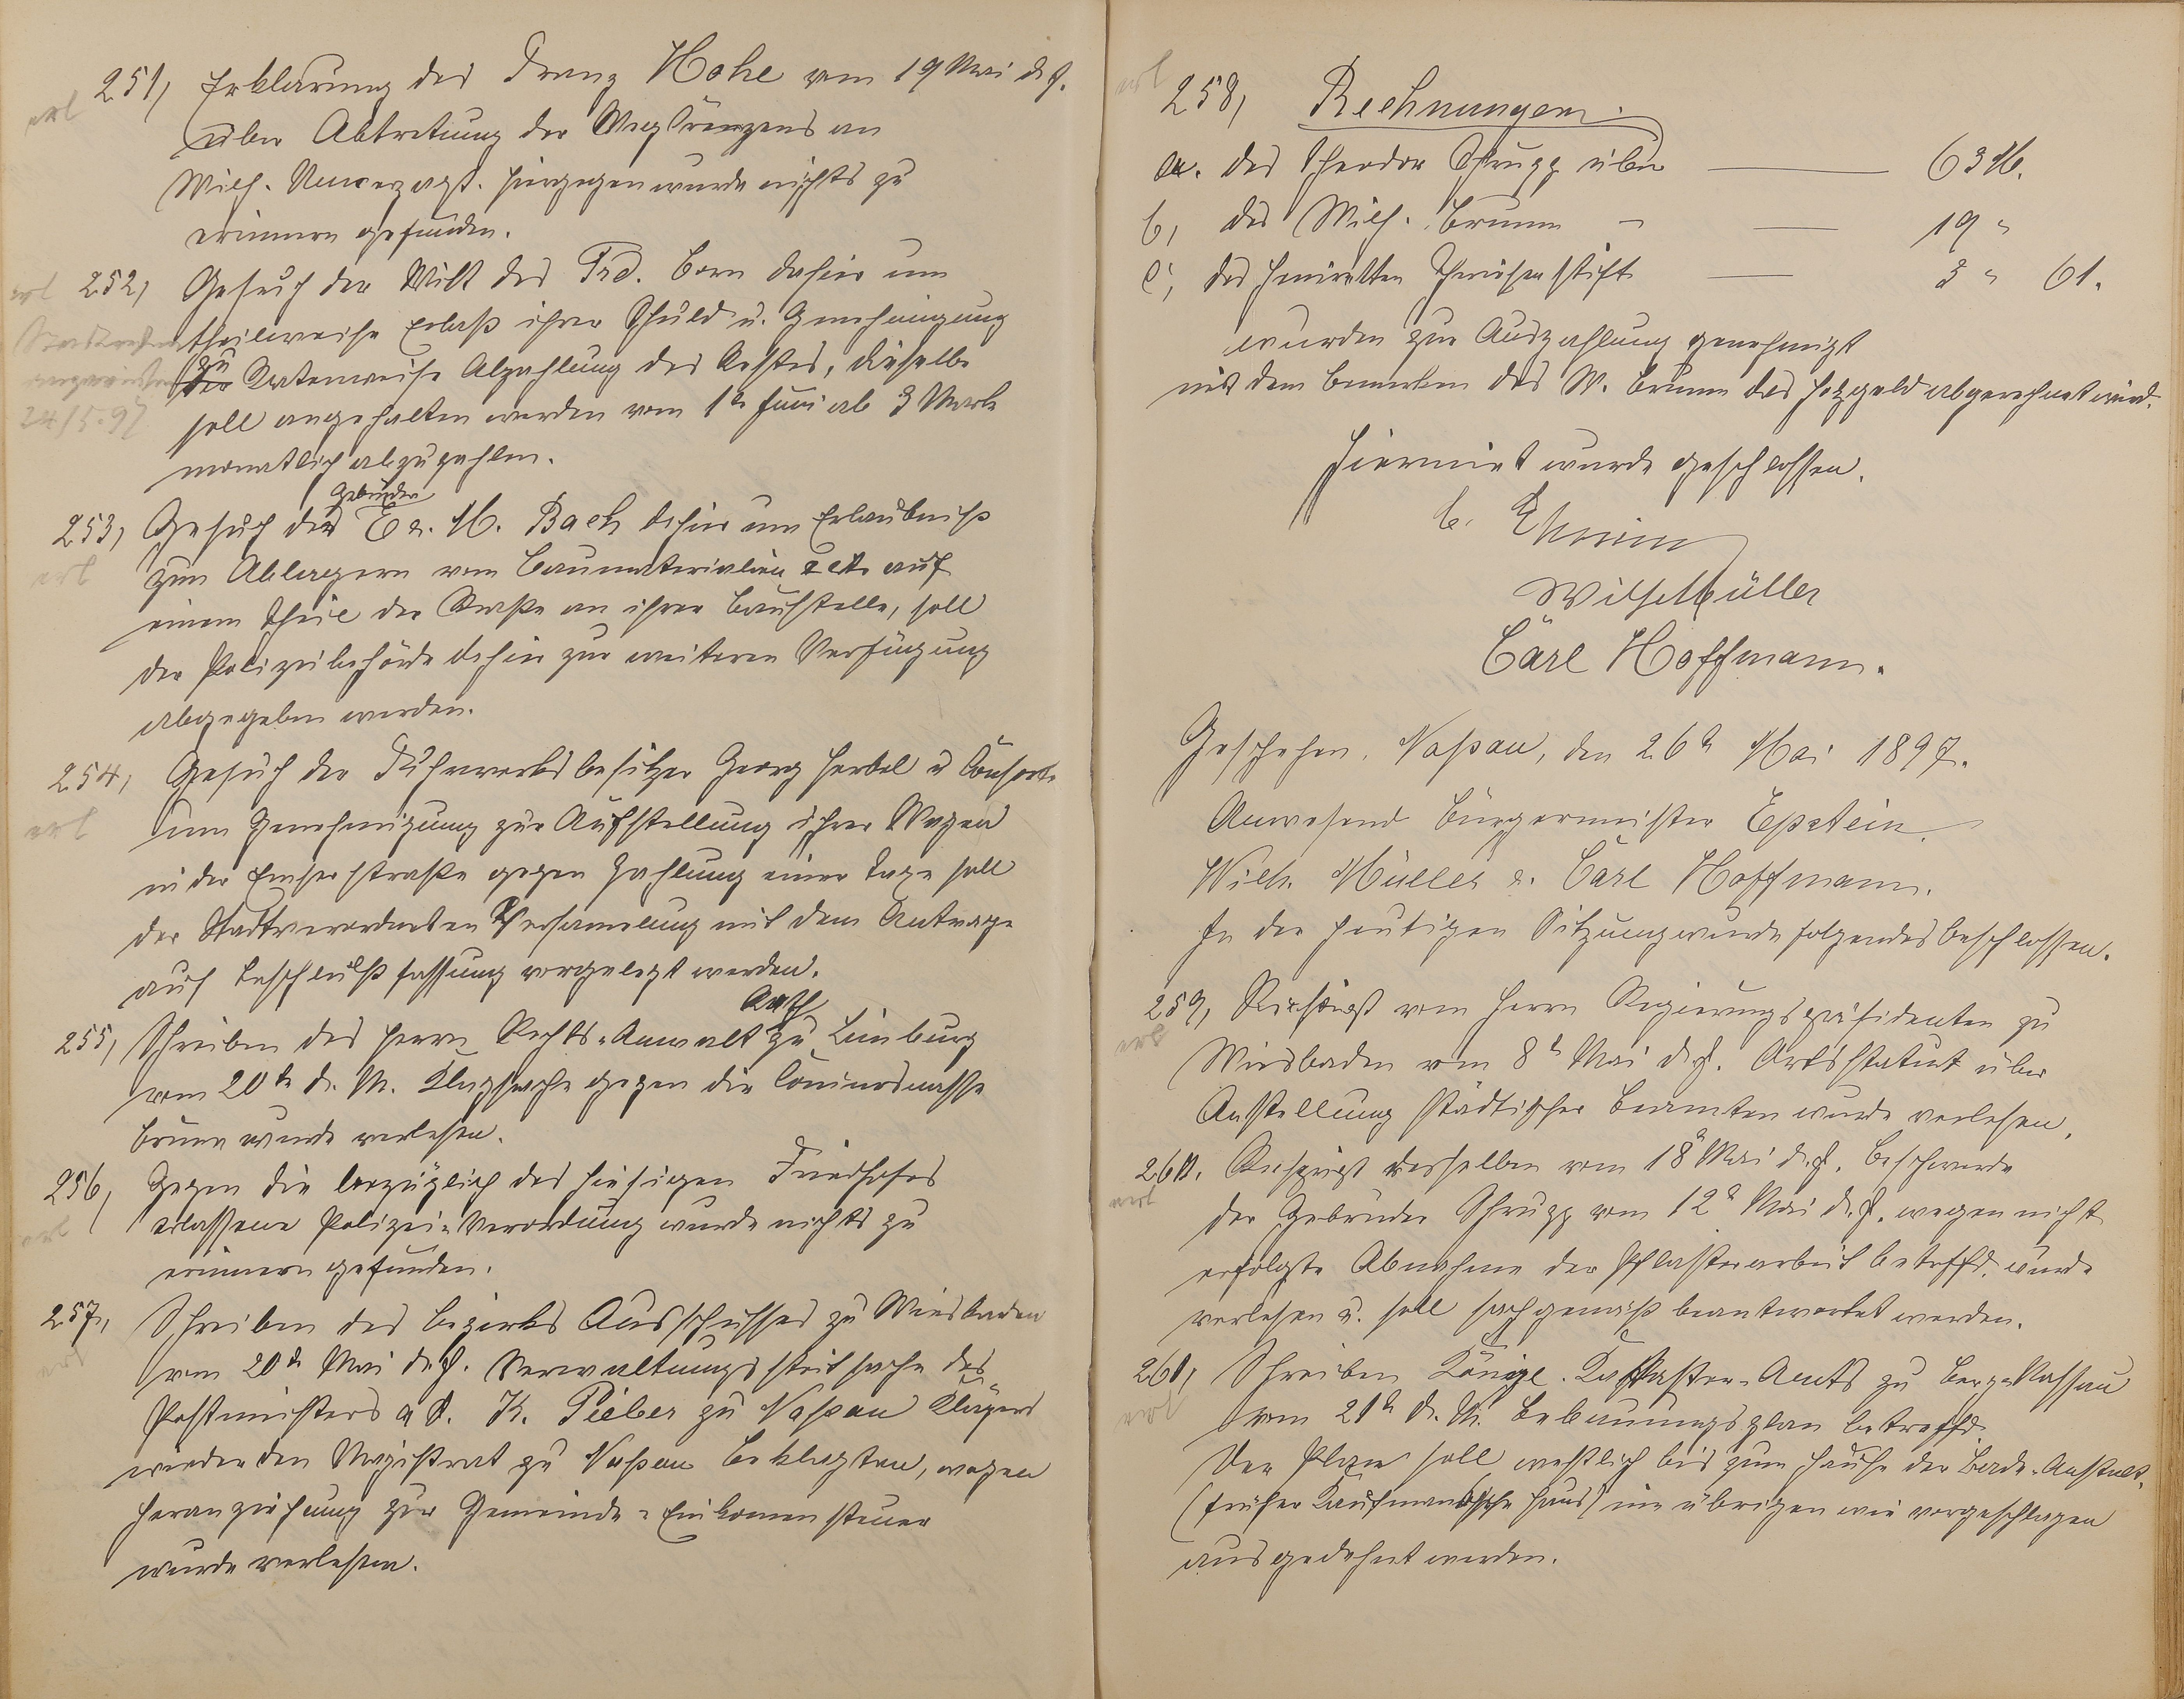 erl 251, Erklärung des Franz Hohe vom 19 Mai d. J.
über Abtretung des Weg an
Wilh. Unverzagt. Hiergegen wurde nichts zu
erinnern gefunden.
erl 252, Gesuch der Witt des Frd. Born dahier um
theilweise Erlaß ihrer Schuld u. Genehmigung
zu Ratenweise Abzahlung des Restes, dieselbe
24/5.97 soll angehalten werden vom 1ten Juni ab 3 Mark
monatlich abzuzahlen.
Gebrüder
253, Gesuch der E u. H. Bach dahier um Erlaubniß
erl zum Ablagern von Baumaterialien auf
einem Theil der Straße an ihrer Baustelle, soll
der Polizeibehörde dahier zur weiteren Verfügung
abgegeben werden.
254, Gesuch der Fuhrwerksbesitzer Georg Herbel u Consorte
erl um Genehmigung zur Aufstellung ihrer Wagen
in der Emserstraße gegen Zahlung einer Taxe soll
der Stadtverordneten Versamlung mit dem Antrage
auf Beschlußfassung vorgelegt werden.
Rath
255, Schreiben des Herrn Rechts-Anwalt zu Limburg
vom 20ten d. M. Klagsache gegen die Concursmasse
Brunn wurde verlesen.
256, Gegen die bezüglich des hiesigen Friedhofes
erl erlassene Polizei-Verordnung wurde nichts zu
erinnern gefunden.
257, Schreiben des Bezirks Ausschusses zu Wiesbaden
erl vom 20ten Mai d. J. Verwaltungsstreitsache des
Postmeisters a D. K. Pieber zu Naßau Klägers
wieder den Magistrat zu Naßau Beklagten, wegen
Heranziehung zur Gemeinde-Einkomensteuer
wurde verlesen.
erl 258, Rechnungen.
a. des Theodor Schrupp über 63 M.
b, des Wilh. Brunn — 19 "
c, des Henrietten Theresen stift 3 " 61.
wurden zur Auszahlung genehmigt
mit dem Bemerken des W. Brunn das Holzgeld abgerechnet wird.
Hiermit wurde geschlossen.
Wilh Müller
Carl Hoffmann.
Geschehen, Naßau, den 26ten Mai 1897.
Anwesend Bürgermeister Epstein
Wilh. Müller u. Carl Hoffmann.
In der heutigen Sitzung wurde folgendes beschlossen.
259, Rescript vom Herrn Regierungspräsidenten zu
erl Wiesbaden vom 8t Mai d. J. Ortsstatut über
Anstellung städtischer Beamten wurde verlesen.
260. Rescript desselben vom 18ten Mai d. J. Beschwerde
erl der Gebrüder Schrupp vom 12ten Mai d. J. wegen nicht
erfolgte Abnahme der Pflasterarbeit betreffd. wurde
verlesen u. soll sachgemäß beantwortet werden.
261, Schreiben Königl. Kataster-Amts zu Berg-Nassau
erl vom 21ten d. M. Bebauungsplan betreffd.
Der Plan soll westlich bis zum Hause der Bade-Anstalt,
(früher Kaufmannsche Haus) im übrigen wie vorgeschlagen
ausgedehnt werden.